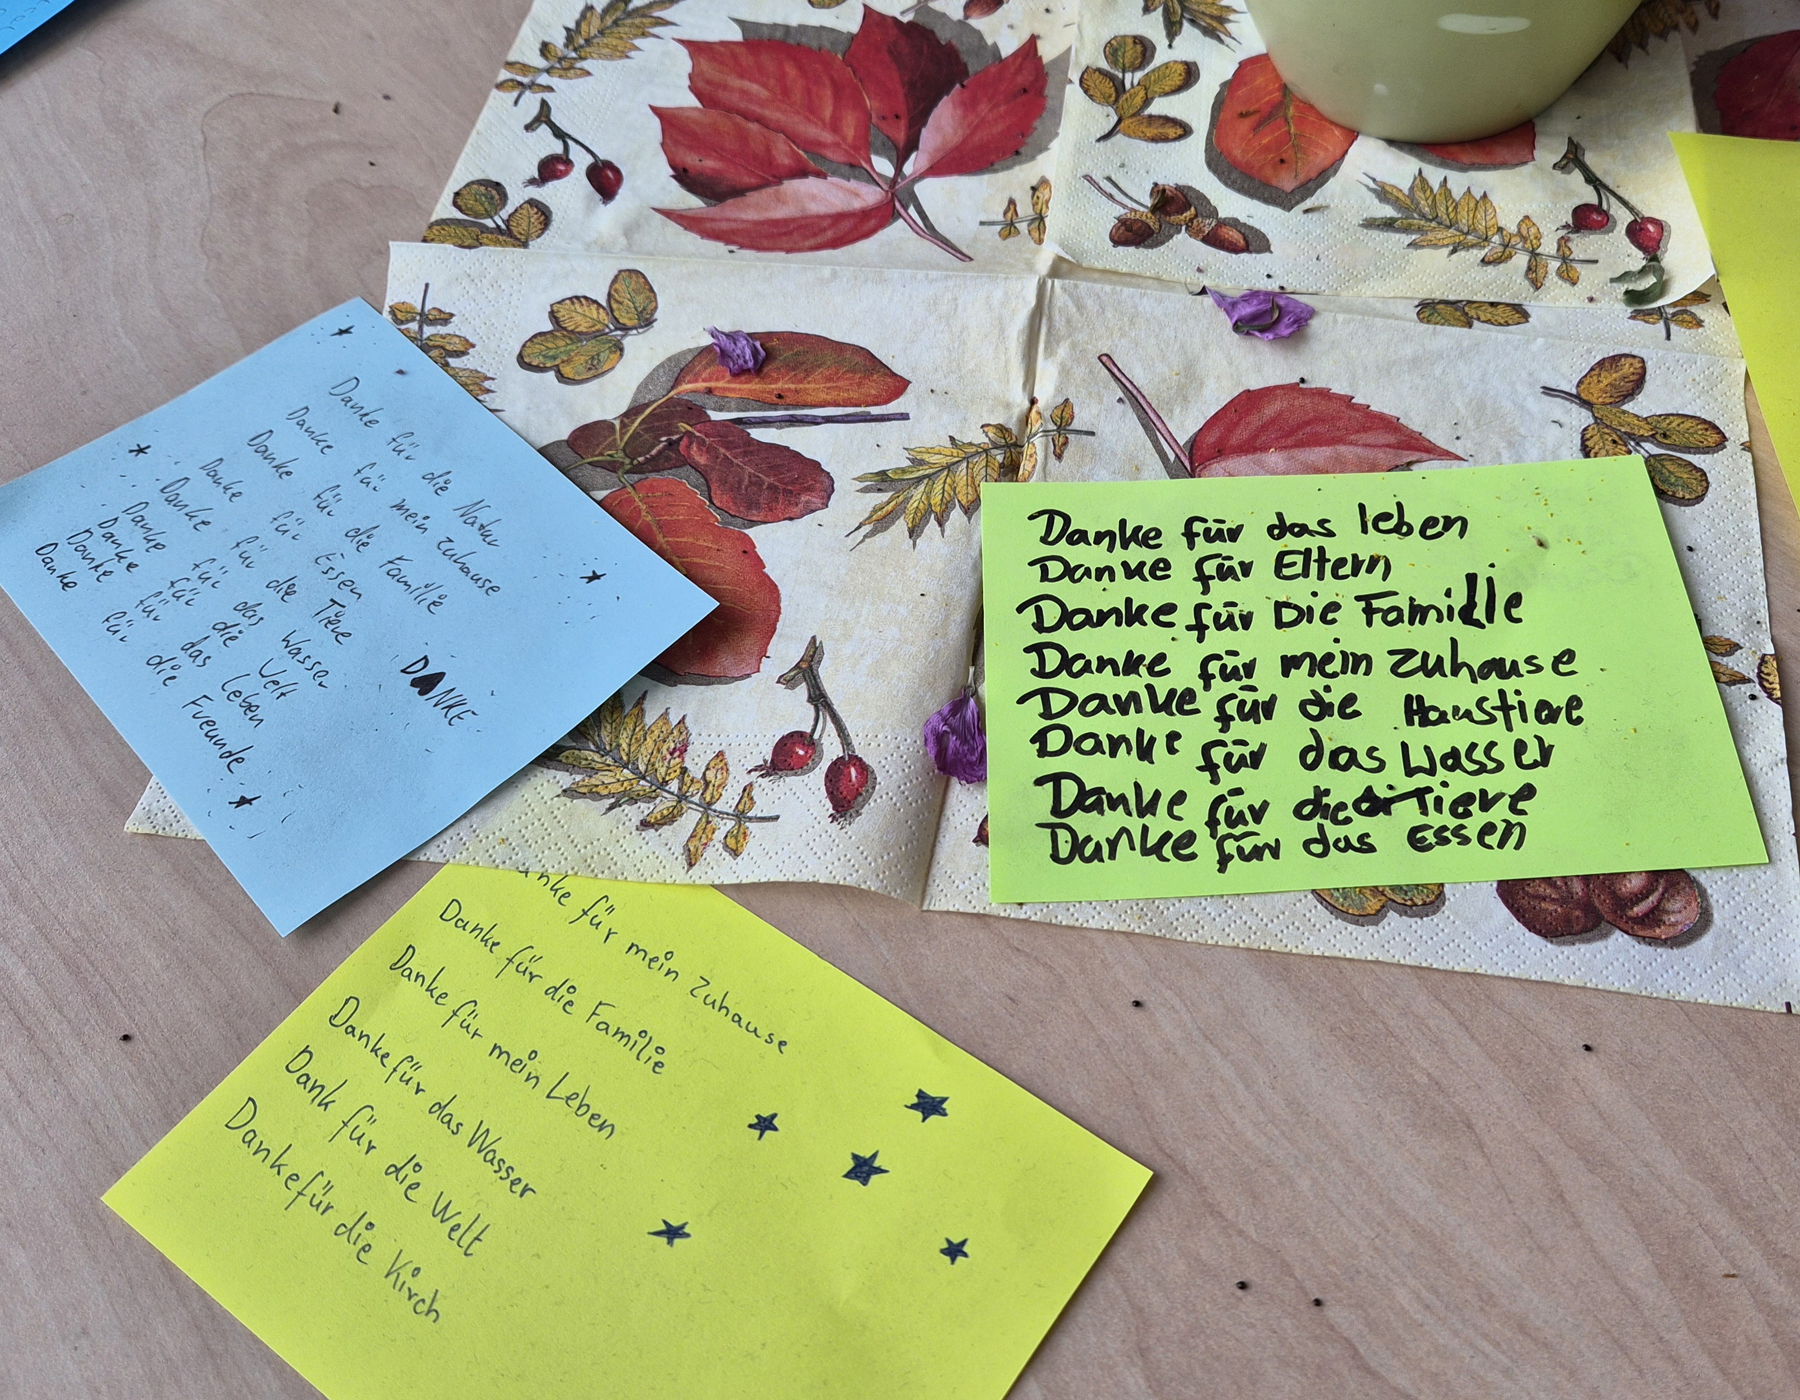 Danke für die Natur
Danke für mein zuhause
Danke für die Familie
Danke für Essen
Danke für die Tiere
Danke für das Wasser
Danke für die Welt
Danke für das Leben
Danke für die Freunde
DANKE
Danke für das leben
Danke für Eltern
Danke für Die Familie
Danke für mein zuhause
Danke für die Haustiere
Danke für das Wasser
Danke für die Tiere
Danke für das Essen
anke für mein Zuhause
Danke für die Familie
Danke für mein Leben
Danke für das Wasser
Dank für die Welt
Danke für die Kirch